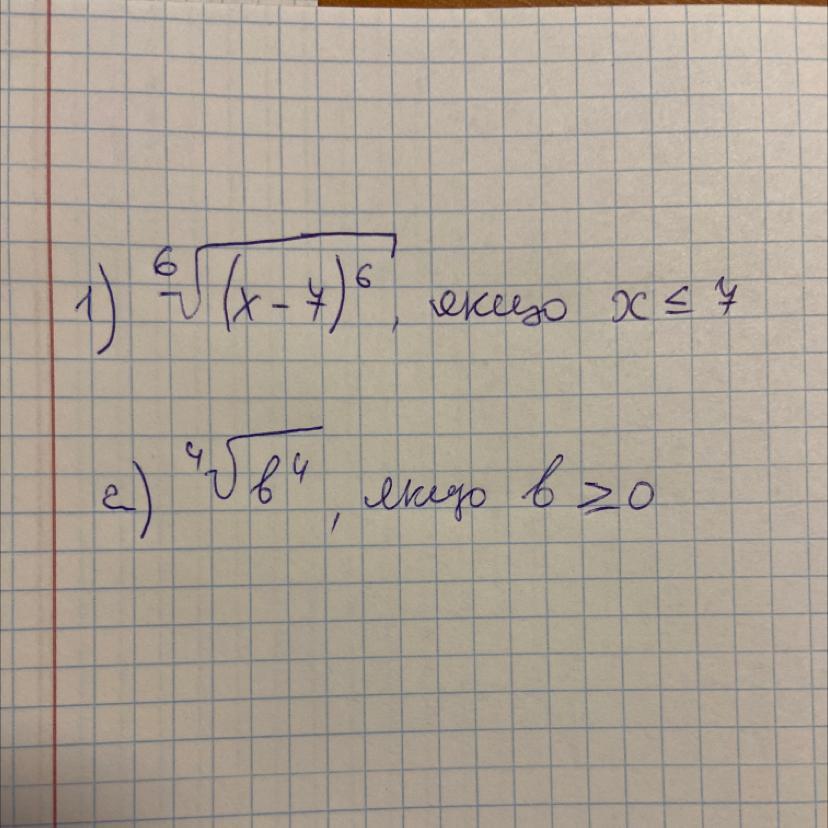 1) ⁶√(x - 7)⁶, якщо x ≤ 7
2) ⁴√b⁴, якщо b ≥ 0